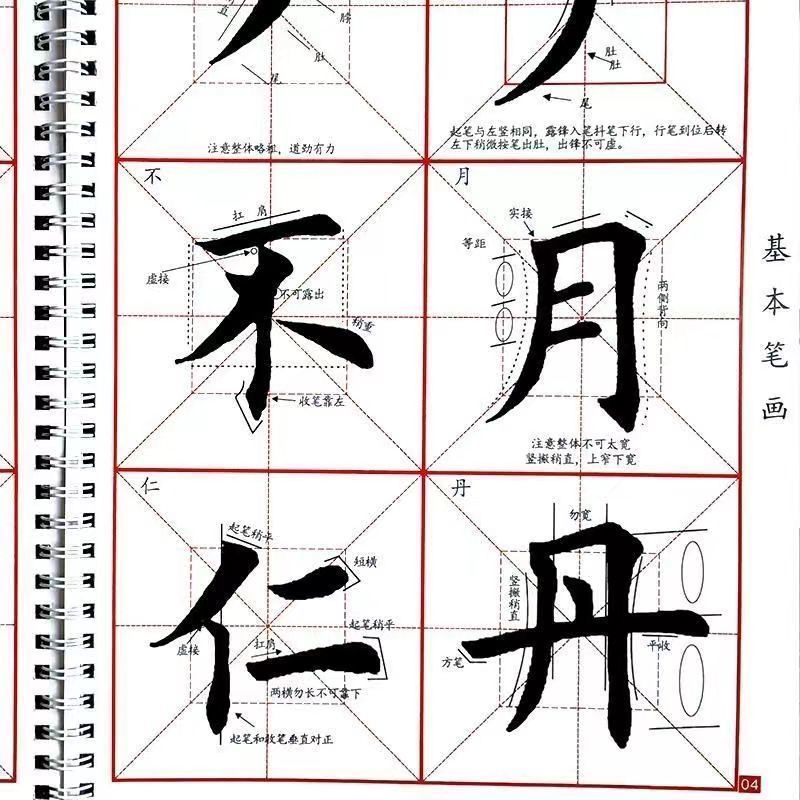 直
肚
尾
注意整体略粗，道劲有力
肚
肚
尾
起笔与左竖相同，露锋入笔抖笔下行，行笔到位后转
左下稍微按笔出肚，出锋不可虚。
不
扛肩
虚接
不可露出
稍重
收笔靠左
不
月
实接
等距
两侧背向
月
注意整体不可太宽
竖撇稍直，上窄下宽
基本笔画
仁
起笔稍平
短横
起笔稍平
虚接
扛肩
两横勿长不可靠下
起笔和收笔垂直对正
仁
丹
勿宽
竖撇稍直
方笔
平收
丹
04